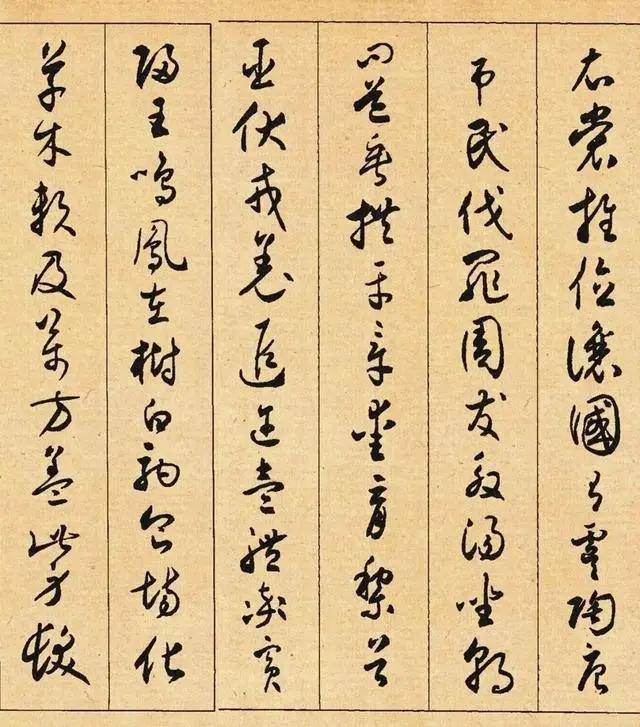 衣裳推位讓國有虞陶唐
吊民伐罪周發殷湯坐朝
問道垂拱平章愛育黎首
臣伏戎羌遐迩壹體率賓
歸王鳴鳳在樹白駒食場化
草木賴及萬方蓋此身髮